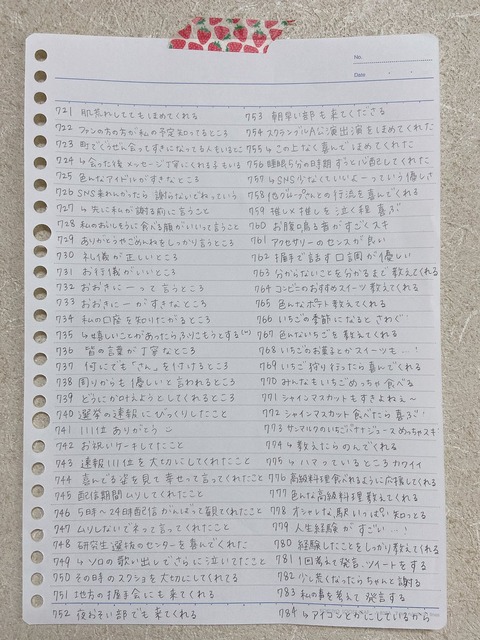 No.
Date
721 肌荒れしててもほめてくれる
722 ファンの方の方が私の予定知ってるところ
723 町でぐうぜん会ってすきになってる人もいるところ
724 ↳会った後メッセージ丁寧にくれる子もいる
725 色んなアイドルがすきなところ
726 SNS来れんかったら謝らないでねっていう
727 ↳先に私が謝る前に言うこと
728 私のおいしそうに食べる顔がいいって言うこと
729 ありがとうやごめんねをしっかり言うところ
730 礼儀が正しいところ
731 お行儀がいいところ
732 おおきにーって言うところ
733 おおきにーがすきなところ
734 私の口座を知りたがるところ
735 ↳嬉しいことがあったらふりこもうとする(笑)
736 皆の言葉が丁寧なところ
737 何にでも「さん」を付けるところ
738 周りからも優しいと言われるところ
739 どうにかロ えようとしてくれるところ
740 選挙の速報にびっくりしたこと
741 111位ありがとう
742 お祝いケーキしてたこと
743 速報111位を大切にしてくれたこと
744 喜んでる姿を見て幸せって言ってくれたこと
745 配信期間ムリしてくれたこと
746 5時〜24時配信がんばって観てくれたこと
747 ムリしないでネって言ってくれたこと
748 研究生選抜のセンターを喜んでくれた
749 ↳ソロの歌い出しでさらに泣いてたこと
750 その時のスクショを大切にしてくれてる
751 地方の握手会にも来てくれる
752 夜おそい部でも来てくれる
753 朝早い部も来てくださる
754 スクランブルAL公演出演をほめてくれた
755 ↳この上なく喜んでほめてくれた
756 睡眠5分の時期ずっと心配としてくれた
757 ↳SNS少なくていいよーっていう優しさ
758 他グループさんとの交流を喜んでくれる
759 推しメ推しを泣く程喜ぶ
760 お腹鳴る音がすごくスキ
761 アクセサリーのセンスが良い
762 握手で話す口調が優しい
763 分からないことを分かるまで教えてくれる
764 コンビニのおすすめスイーツ教えてくれる
765 色んなポテト教えてくれる
766 いちごの季節になるとさわぐ!
767 色んないちごを教えてくれる
768 いちごのお菓子とかスイーツも…!
769 いちご狩り行ったら喜んでくれる
770 みんなもいちごめっちゃ食べる
771 シャインマスカットもすきよねぇ〜
772 シャインマスカット食べたら喜ぶ!
773 サンマルクのいちごバナナジュースめっちゃスキ
774 ↳教えたらのんでくれる
775 ↳ハマっているところカワイイ
776 高級料理食べれるように応援してくれる
777 色んな高級料理教えてくれる
778 オシャレな駅いっぱい知っとる
779 人生経験がすごい…!
780 経験したことをしっかり教えてくれる
781 1回考えて発言、ツイートをする
782 少し荒くなったらちゃんと謝る
783 私の事を考えて発言する
784 ↳アイコンとかにしているから